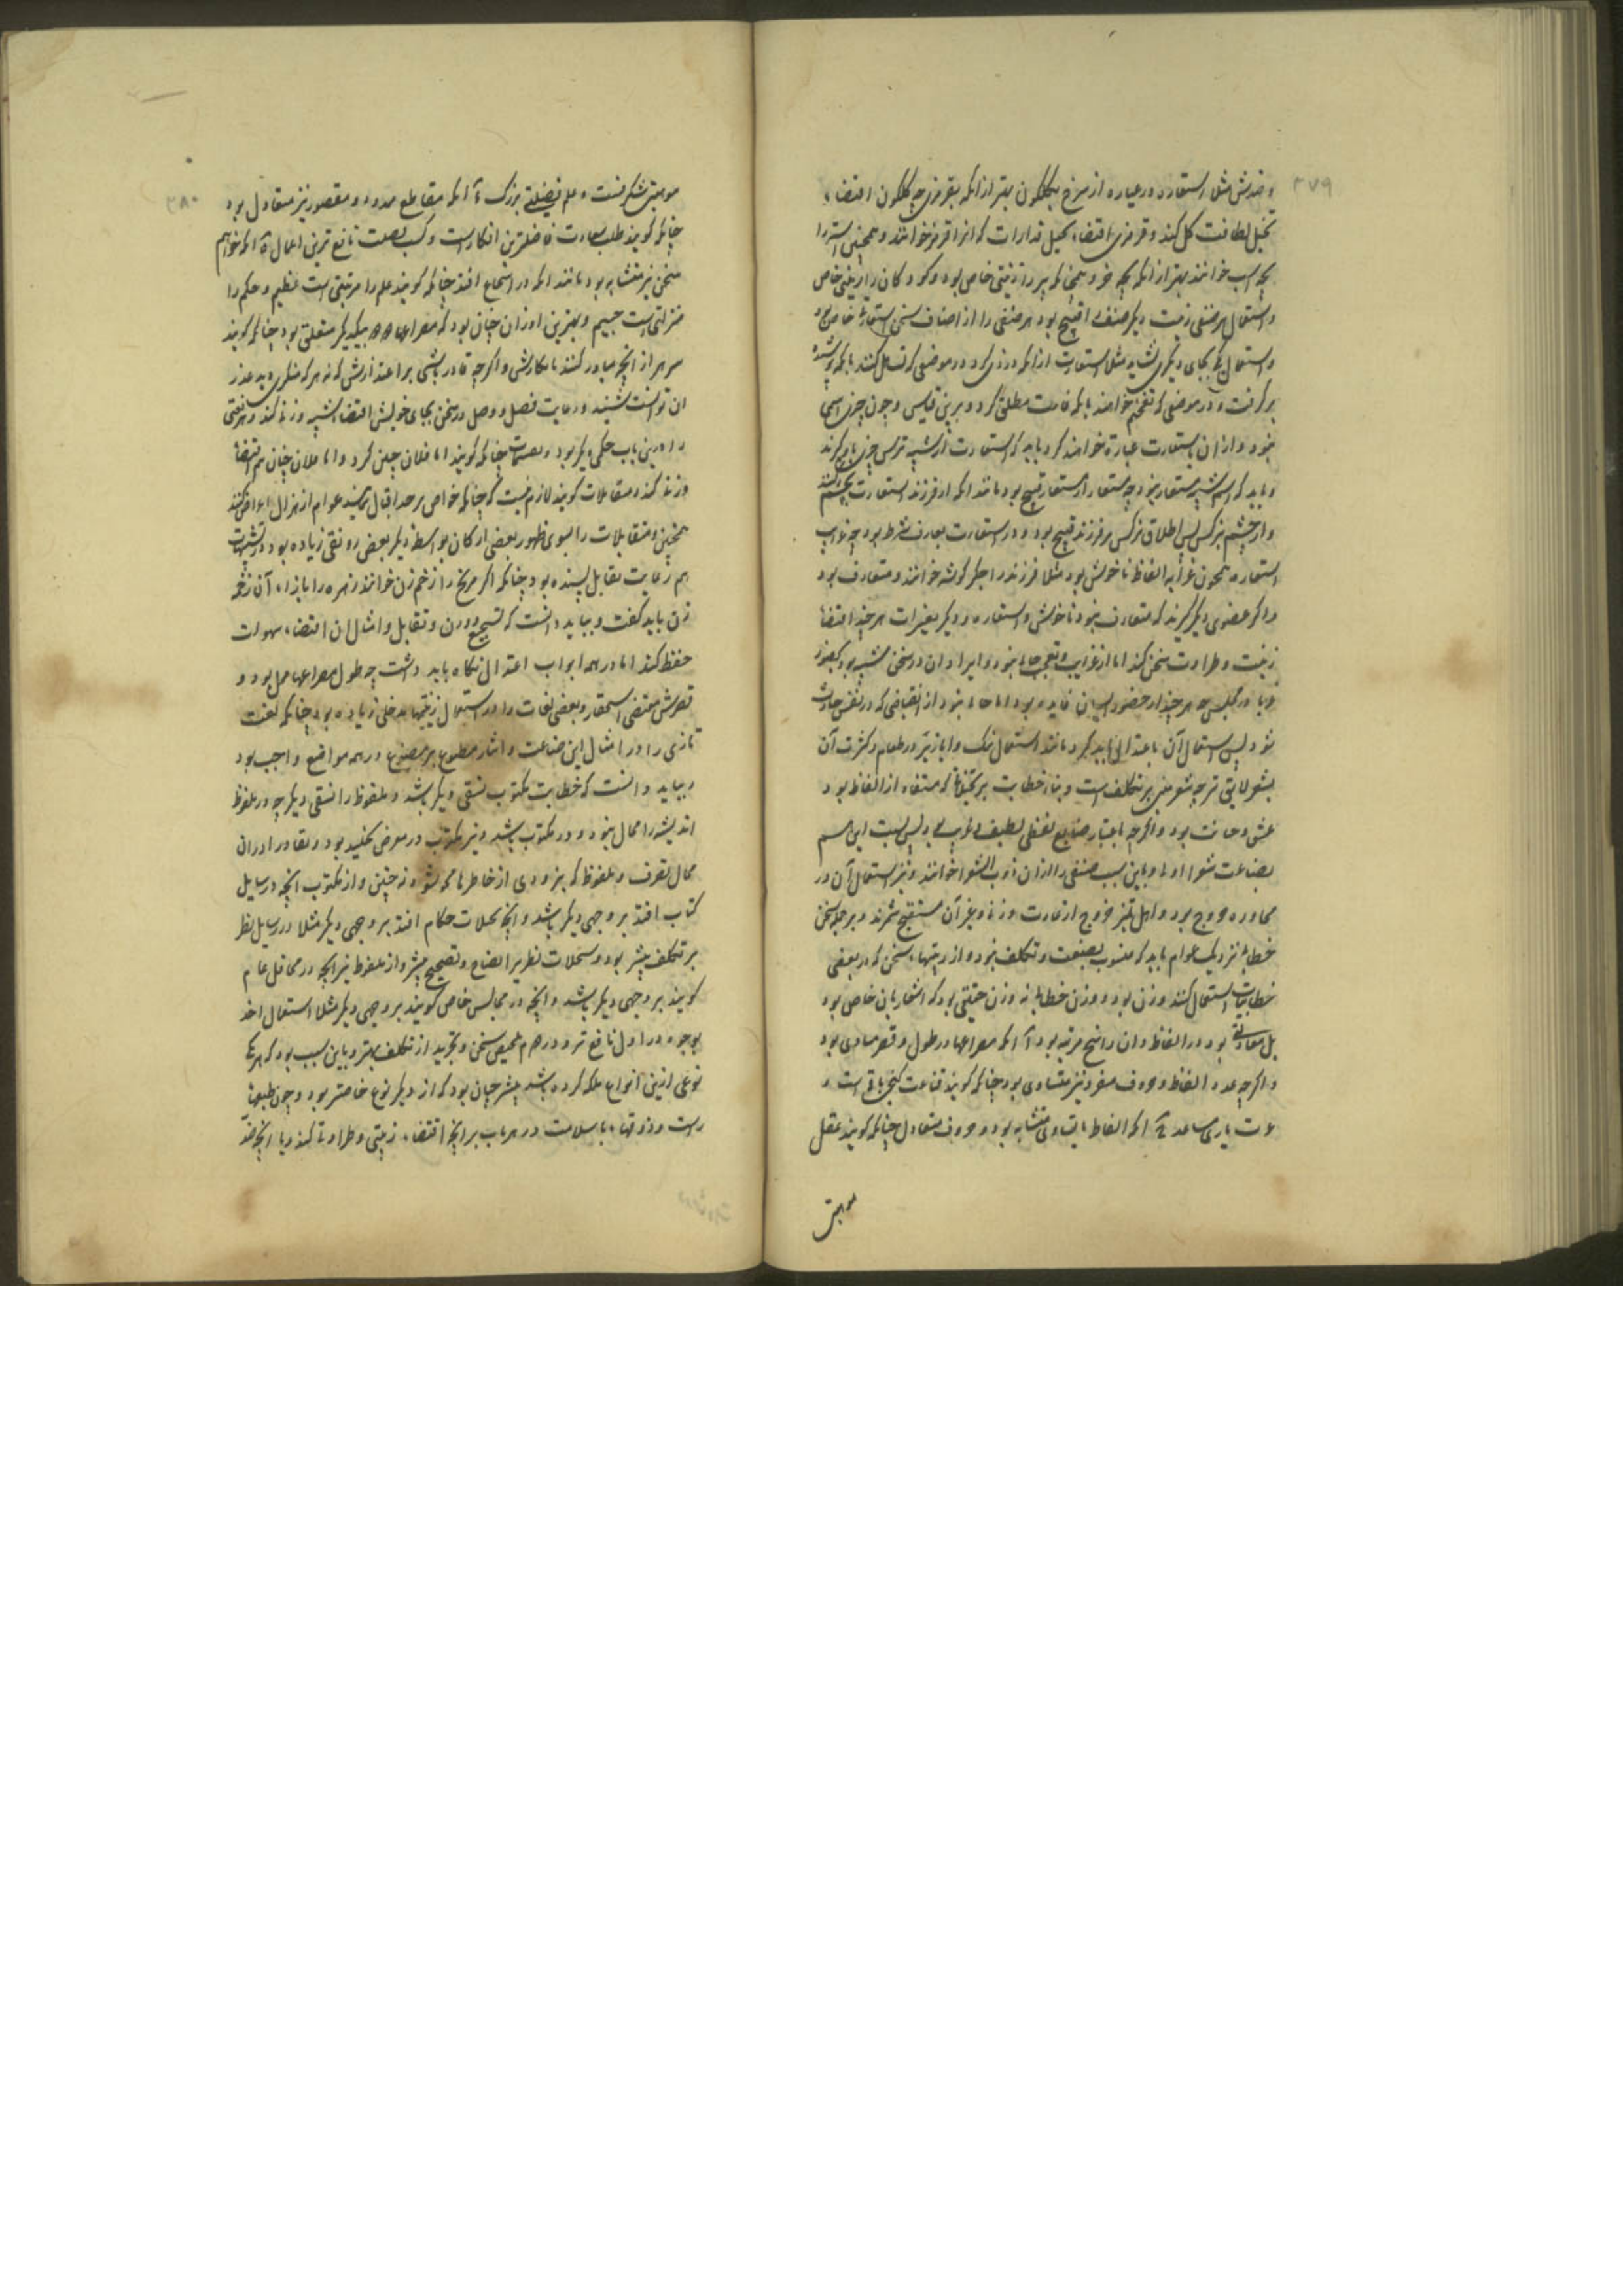 ۳۷۹
و ضدش مثلا استعاره در عباره از سرخ بگلگون بهتر از انکه بقرمزی چه گلگون اقتضاء
تخیل لطافت گل کند و قرمزی اقتضاء تخیل قذارات که انرا قرمز خوانند و همچنین استر را
بچه اسب خوانند بهتر از انکه بچه خر و همچنانکه پیر را زینتی خاص بود و کودکان را زینتی خاص
و استعمال هر صنفی زینت دیگر صنف را قبیح بود هر صنفی را از اصناف سخن استعارتی خاص بود
و استعمال یکی بجای دیگری نشاید مثلا استعارت از انکه دزدی کرد در موضعی که تساهل کنند بانکه پوشیده
برگرفت و در موضعی که تفخیم خواهند بانکه غارت مطلق کرد و برین قیاس و چون چیزی اسمی
نبود و از ان باستعارت عبارت خواهند کرد باید که استعارت از شبیه ترین چیزی باو گیرند
و باید که اسم شبیه مستعار نبود چه مستعار از مستعار قبیح بود مانند انکه از فرزند استعارت بچشم کنند
و از چشم بنرگس پس اطلاق نرگس بر فرزند قبیح بود و در استعارت تعارف شرط بود چه غرایب
استعاره همچون غرابه الفاظ ناخوش بود مثلا فرزند را جگر گوشه خوانند و متعارف بود
و اگر عضوی دیگر گیرند که متعارف نبود ناخوش و استعاره و دیگر تغیرات هر چند اقتضاء
زینت و طراوت سخن کند اما از غرایب و تعجب خالی نبود و ایراد ان در سخن شبیه بود بحضور
غربا در مجلسی چه هر چند از حضور ایشان فایده بود اما خالی نبود از انقباضی که در نفس حادث
شود پس استعمال آن باعتدالی باید کرد مانند استعمال نمک و ابازیر در طعام و کثرت آن
بشعر لایق تر چه شعر مبنی بر تکلف است و بناء خطابت بر تخیلاتی که مستفاد از الفاظ بود
غش و خیانت بود و اگرچه باعتبار صنایع لفظی لطیف و غریب بود پس نسبت این قسم
بصناعت شعر اولی و باین سبب صنفی را از ان ذوب الشعرا خوانند و نیز استعمال آن در
محاوره خروج بود و اهل تمیز خروج از عادت وزن و غیر آن مستقبح شمرند و بر جمله سخن
خطابی نزدیک عوام باید که منسوب بصنعت و تکلف نبود و از زینتهاء سخن که در بعضی
خطابیات استعمال کنند وزن بود و وزن خطابی نه وزن حقیقی بود که اشعار بان خاص بود
بل معادلتی بود در الفاظ و ان را پنج مرتبه بود آ آنکه مصراعها در طول و قصر مساوی بود
و اگرچه عدد الفاظ و حروف مفرد نیز متساوی بود چنانکه گویند قناعت گنجی باقی است و
عزت یاری مساعد ب انکه الفاظ با تساوی متشابه بود و حروف متعادل چنانکه گویند عقل
موهبتی
۳۸۰
موهبتی شگرفست و علم فضیلتی بزرگ ج آنکه مقاطع ممدود و مقصور نیز متعادل بود
چنانکه گویند طلب سعادت فاضلترین افکار است و کسب فضیلت نافع ترین اعمال د آنکه خواتیم
سخن نیز متشابه بود مانند انکه در اسجاع افتد چنانکه گویند علم را مرتبتی است عظیم و حکم را
منزلتی است جسیم و بهترین اوزان چنان بود که مصراعها را بیکدیگر تعلقی بود چنانکه گویند
مرهر از آنچه مبادرت کنند بانکارش و اگرچه قادر باشی بر اعتذارش که نه هر که منکری دید عذر
ان توانست شنید و رعایت فصل و وصل در سخن بجای خویش اقتضاء شبیه وزنی کند و هر لغتی
را درین باب حکمی دیگر بود و بعضی چنانکه گویند اما فلان چنین کرد و اما فلان چنان هم اقتضاء
وزنی کند و مقابلات گویند لازم نیست که چنانکه خواص بر جد اقبال نمایند عوام از هزل اعراض کنند
همچنین و متقابلات را بسوی ظهور بعضی ارکان بواسطه دیگر بعضی رونقی زیاده بود و در تشبیهات
هم رعایت تقابل پسندیده بود چنانکه اگر مریخ را زخم زن خوانند زهره را بازاء آن زخمه
زن باید گفت و بباید دانست که تسجیع و وزن و تقابل و امثال ان اقتضاء سهولت
حفظ کند اما در همه ابواب اعتدال نگاه باید داشت چه طول مصراعها ممل بود و
قصرش مقتضی استحقار و بعضی لغات را در استعمال زینتها مدخلی زیاده بود چنانکه لغت
تازی را در امثال این صناعت و ایثار مطبوع بر مصنوع در همه مواضع واجب بود
و بباید دانست که خطابت مکتوب نسقی دیگر باشد و ملفوظ را نسقی دیگر چه در ملفوظ
اندیشه را مجال نبود و در مکتوب باشد و نیز مکتوب در معرض تخلید بود و نقاد را دران
مجال تصرف و ملفوظ که بزودی از خاطرها محو شود نه چنین و از مکتوب انچه در رسایل
کتاب افتد بر وجهی دیگر باشد و انچه بسجلات حکام افتد بر وجهی دیگر مثلا در رسایل نظر
بر تکلف بیشتر بود و در سجلات نظر بر ایضاح و تصحیح بیشتر و از ملفوظ نیز انچه در محافل عام
گویند بر وجهی دیگر باشد و انچه در مجالس خاص گویند بر وجهی دیگر مثلا استعمال اخذ
بوجوه در اول نافع تر و در دوم تلخیص سخن و تجرید از تکلف بهتر و باین سبب بود که هر که
نوعی ازین انواع ملکه کرده باشد بیشتر چنان بود که از دیگر نوع قاصر بود و چون طبعها
راست و ذوقهاء با سلامت در هر باب بر انچه اقتضاء زینتی و طراوتی کند و با انچه ضد